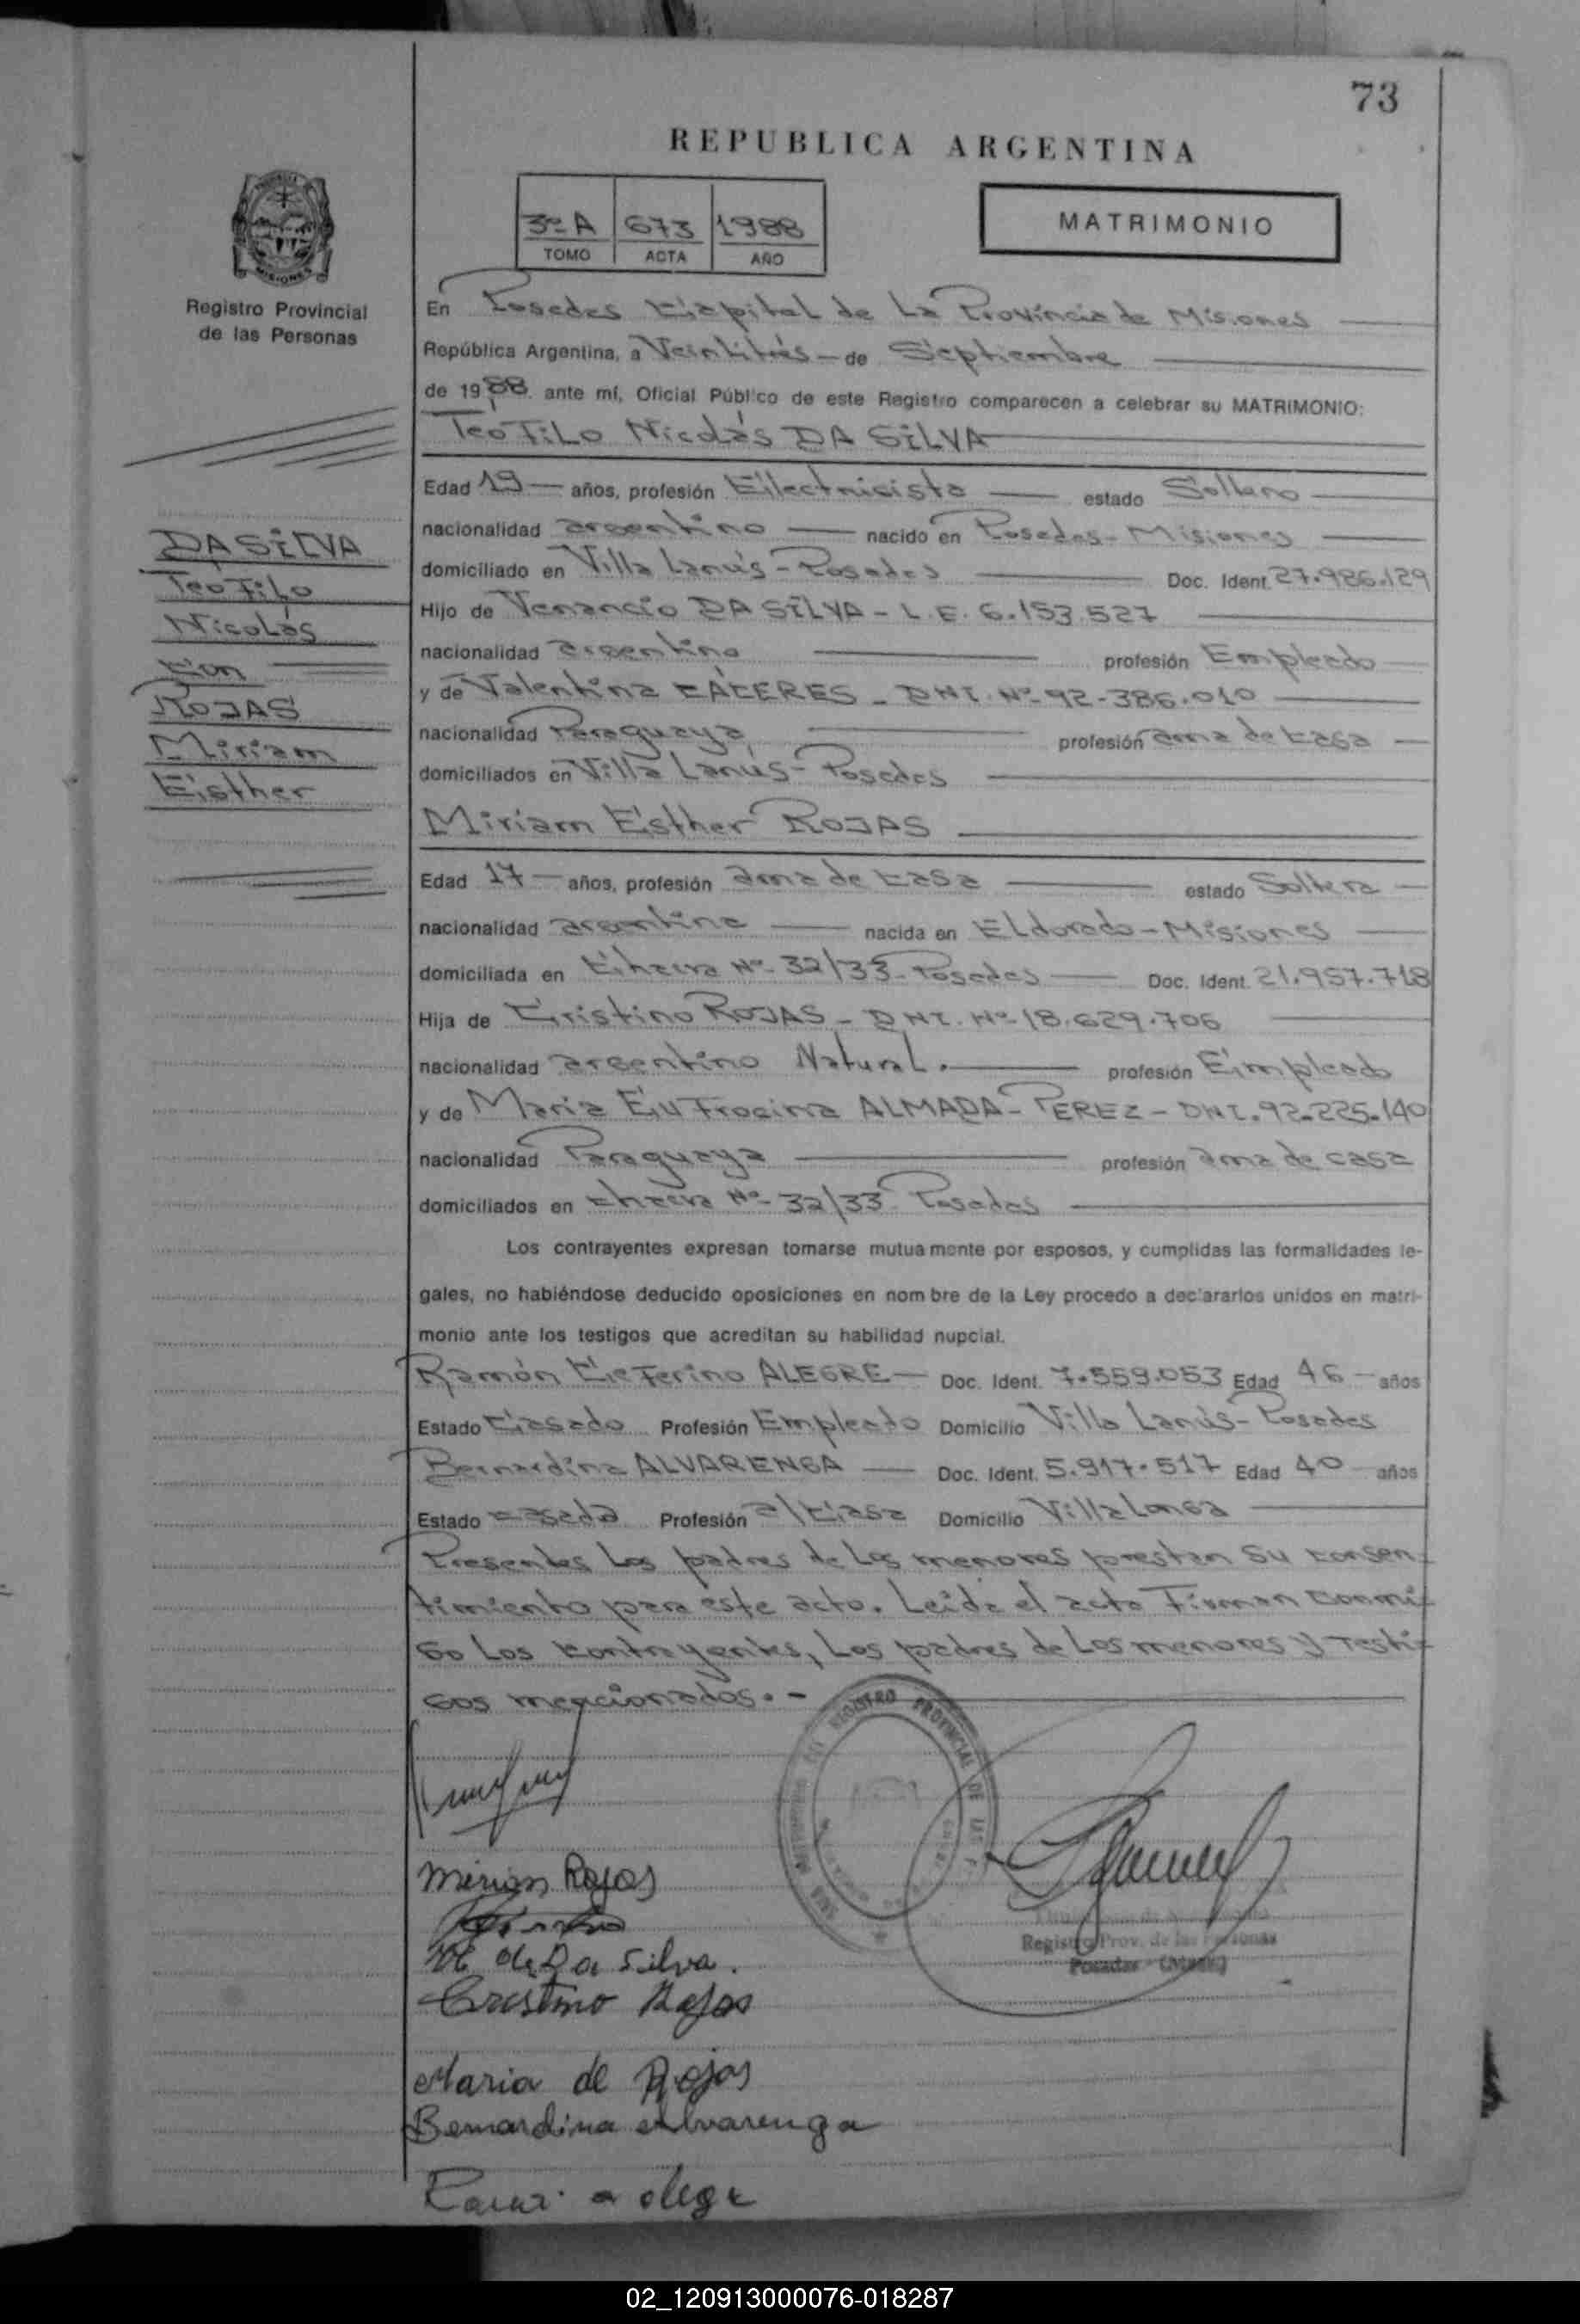 73
REPUBLICA ARGENTINA
3º A 673 1988
TOMO ACTA AÑO
MATRIMONIO
MISIONES
Registro Provincial
de las Personas
En Posadas Capital de La Provincia de Misiones
República Argentina, a Veintitrés - de Septiembre
de 1988 ante mí, Oficial Público de este Registro comparecen a celebrar su MATRIMONIO:
TeoFiLo Nicolás DA SiLVA
Edad 19 años, profesión Electricista estado Soltero
nacionalidad argentino nacido en Posadas - Misiones
domiciliado en Villa Lanús - Posadas Doc. Ident. 27.986.129
Hijo de Venancio DA SiLVA - L.E. 6.153.527
nacionalidad argentino profesión Empleado
y de Valentina CÁCERES - DNI. Nº 92-386.010
nacionalidad Paraguaya profesión ama de casa
domiciliados en Villa Lanús - Posadas
DA SiLVA
TeoFiLo
Nicolás
Con
ROJAS
Miriam
Esther
Miriam Esther ROJAS
Edad 17 años, profesión ama de casa estado Soltera
nacionalidad argentina nacida en ELdorado - Misiones
domiciliada en Chacra Nº 32/33 - Posadas Doc. Ident. 21.957.718
Hija de Cristino ROJAS - DNI. Nº 18.629.706
nacionalidad argentino Natural. profesión Empleado
y de Maria EuFrocina ALMADA - PEREZ - DNI. 92.225.140
nacionalidad Paraguaya profesión ama de casa
domiciliados en chacra Nº 32/33 - Posadas
Los contrayentes expresan tomarse mutuamente por esposos, y cumplidas las formalidades le-
gales, no habiéndose deducido oposiciones en nombre de la Ley procedo a declararlos unidos en matri-
monio ante los testigos que acreditan su habilidad nupcial.
Ramón CeFerino ALEGRE Doc. Ident. 7.559.053 Edad 46 años
Estado Casado Profesión Empleado Domicilio Villa Lanús - Posadas
Bernardina ALVARENGA Doc. Ident. 5.917.517 Edad 40 años
Estado casada Profesión a/Casa Domicilio Villa Longa
Presentes Los padres de Los menores prestan su consen-
timiento para este acto. Leída el acta Firman conmi-
go Los contrayentes, Los padres de Los menores y Testi-
gos mencionados. -
REGISTRO PROVINCIAL DE LAS
Mirian Rojas
V C de Da Silva.
Cristino Rojas
Registro Prov. de las Personas
Posadas (Mnes)
Maria de Rojas
Bernardina Alvarenga
02_120913000076-018287